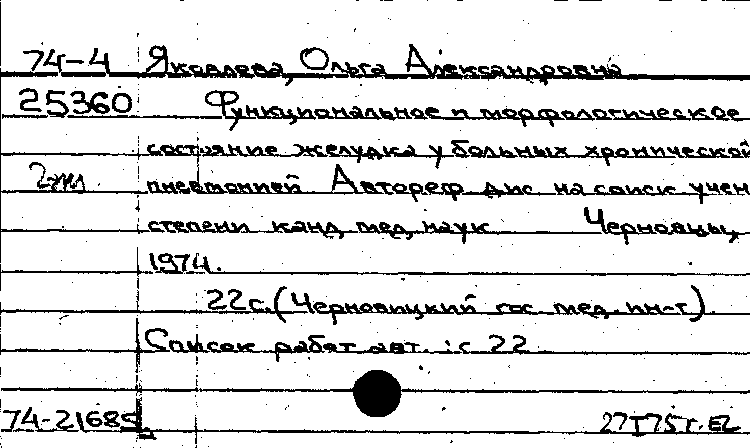 74-4 Яковлева, Ольга Александровна
25360 Функциональное и морфологическое
состояние желудка у больных хронической
2 экз. пневмонией. Автореф. дис. на соиск. учен.
степени канд. мед. наук. Черновцы,
1974.
22 с. (Черновицкий гос. мед. ин-т).
Список работ авт.: с. 22
74-21685 27 I 75 г. EZ